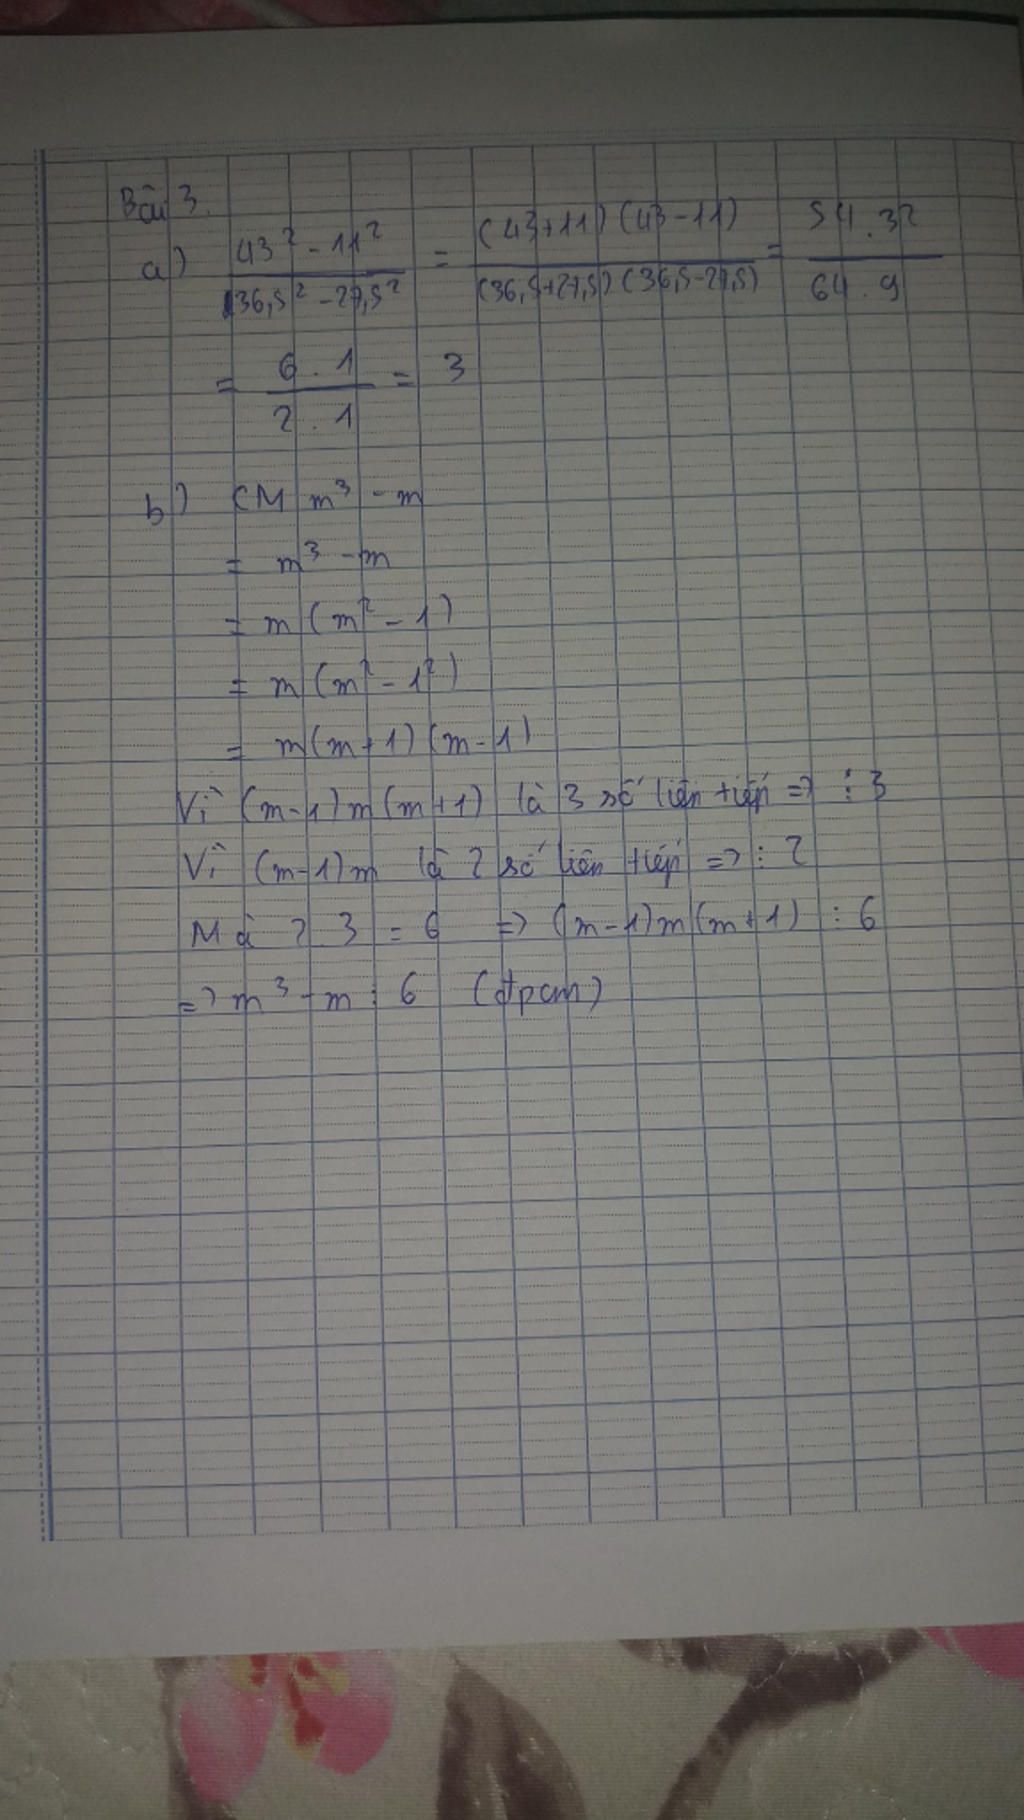 Bài 3.
a) 43² - 11² / 36,5² - 27,5² = (43+11)(43-11) / (36,5+27,5)(36,5-27,5) = 54.32 / 64.9
= 6.1 / 2.1 = 3
b) CM m³ - m
= m³ - m
= m(m² - 1)
= m(m² - 1²)
= m(m+1)(m-1)
Vì (m-1)m(m+1) là 3 số liên tiếp => ⋮ 3
Vì (m-1)m là 2 số liên tiếp => ⋮ 2
Mà 2.3 = 6 => (m-1)m(m+1) ⋮ 6
=> m³ - m ⋮ 6 (đpcm)